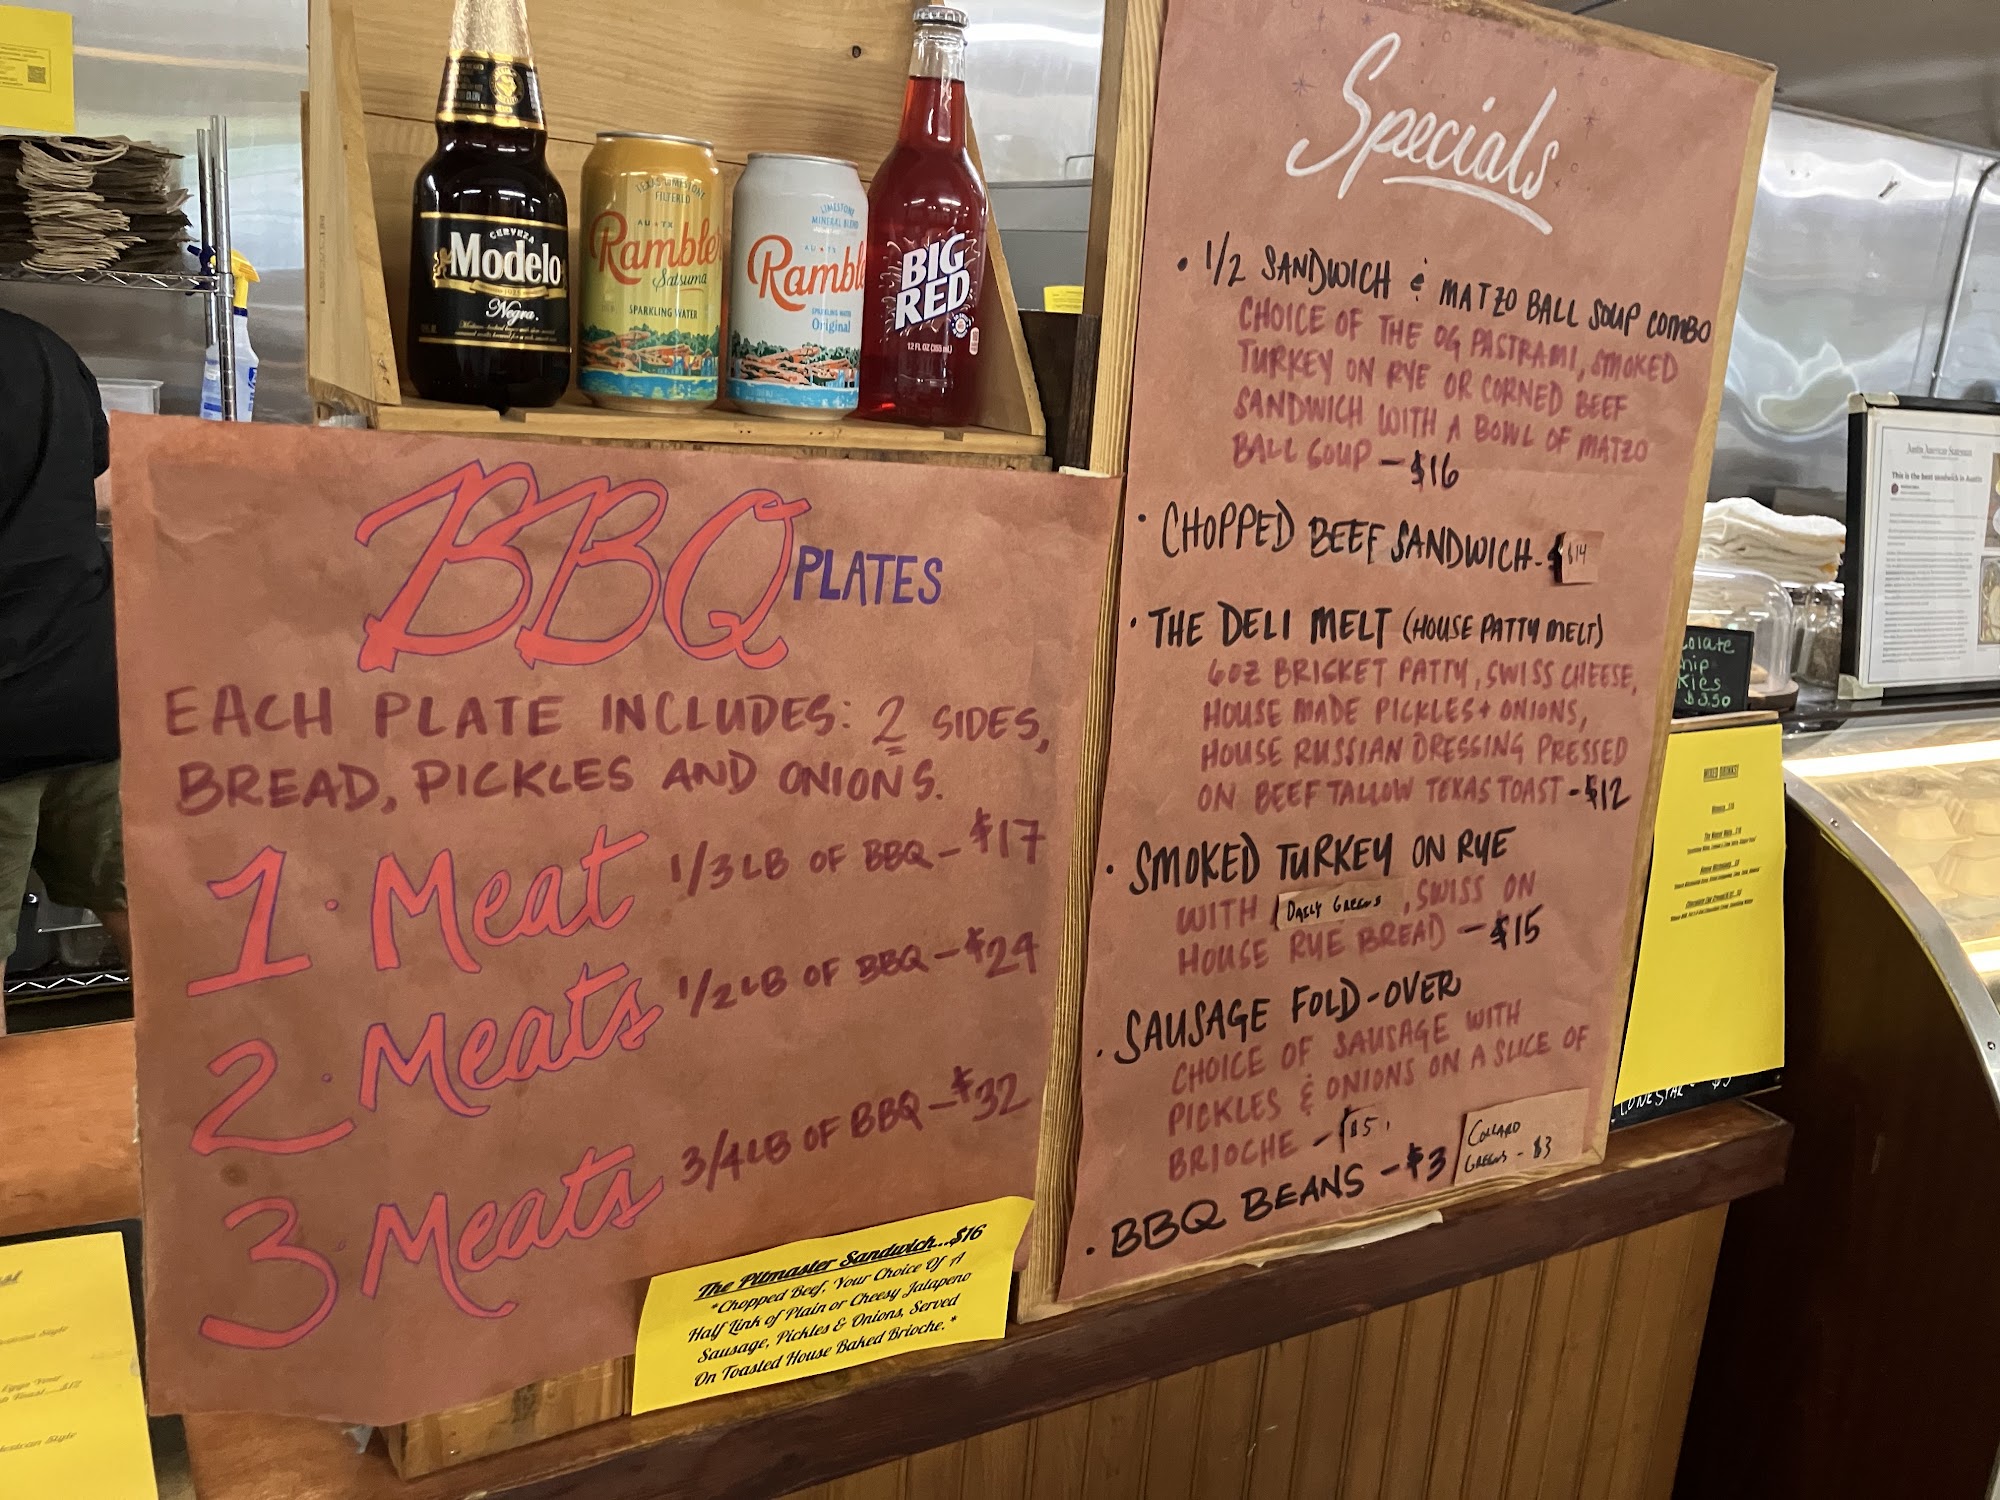 CERVEZA
Modelo
Negra.
TEXAS LIMESTONE
FILTERED
AU TX
Rambler
Satsuma
SPARKLING WATER
LIMESTONE
MINERAL BLEND
AU TX
Rambl
SPARKLING WATER
Original
BIG
RED
12 FL OZ (355 mL)
BBQ PLATES
EACH PLATE INCLUDES: 2 SIDES,
BREAD, PICKLES AND ONIONS.
1 · Meat 1/3 LB OF BBQ - $17
2 · Meats 1/2 LB OF BBQ - $24
3 · Meats 3/4 LB OF BBQ - $32
The Pitmaster Sandwich...$16
*Chopped Beef, Your Choice Of A
Half Link of Plain or Cheesy Jalapeno
Sausage, Pickles & Onions, Served
On Toasted House Baked Brioche.*
Specials
· 1/2 SANDWICH & MATZO BALL SOUP COMBO
CHOICE OF THE OG PASTRAMI, SMOKED
TURKEY ON RYE OR CORNED BEEF
SANDWICH WITH A BOWL OF MATZO
BALL SOUP - $16
· CHOPPED BEEF SANDWICH - $14
· THE DELI MELT (HOUSE PATTY MELT)
6OZ BRISKET PATTY, SWISS CHEESE,
HOUSE MADE PICKLES + ONIONS,
HOUSE RUSSIAN DRESSING PRESSED
ON BEEF TALLOW TEXAS TOAST - $12
· SMOKED TURKEY ON RYE
WITH DAILY GREENS, SWISS ON
HOUSE RYE BREAD - $15
· SAUSAGE FOLD-OVER
CHOICE OF SAUSAGE WITH
PICKLES & ONIONS ON A SLICE OF
BRIOCHE - $5
· BBQ BEANS - $3
COLLARD
GREENS - $3
Austin American-Statesman
This is the best sandwich in Austin
olate
hip
kies
$3.50
MIXED DRINKS!
LONESTAR - $3